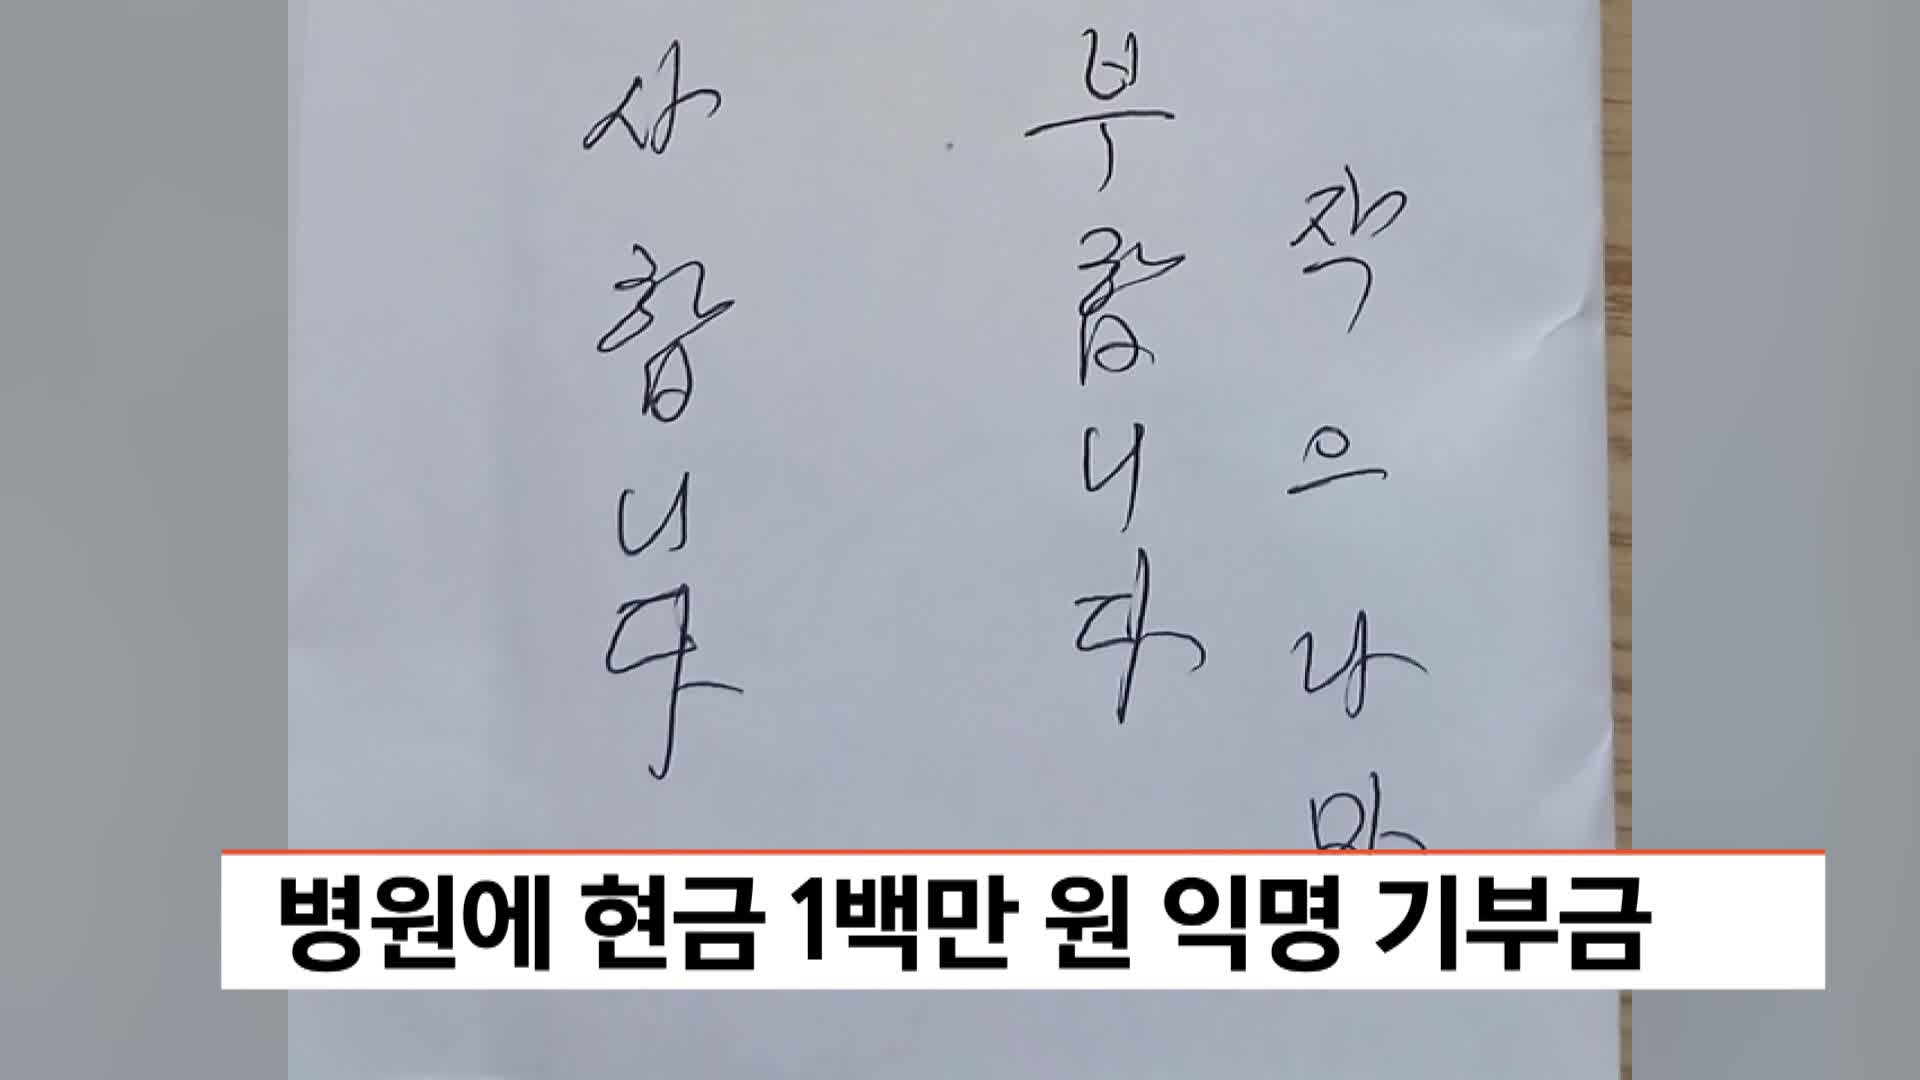 작으나마
부합니다
사합니다
병원에 현금 1백만 원 익명 기부금